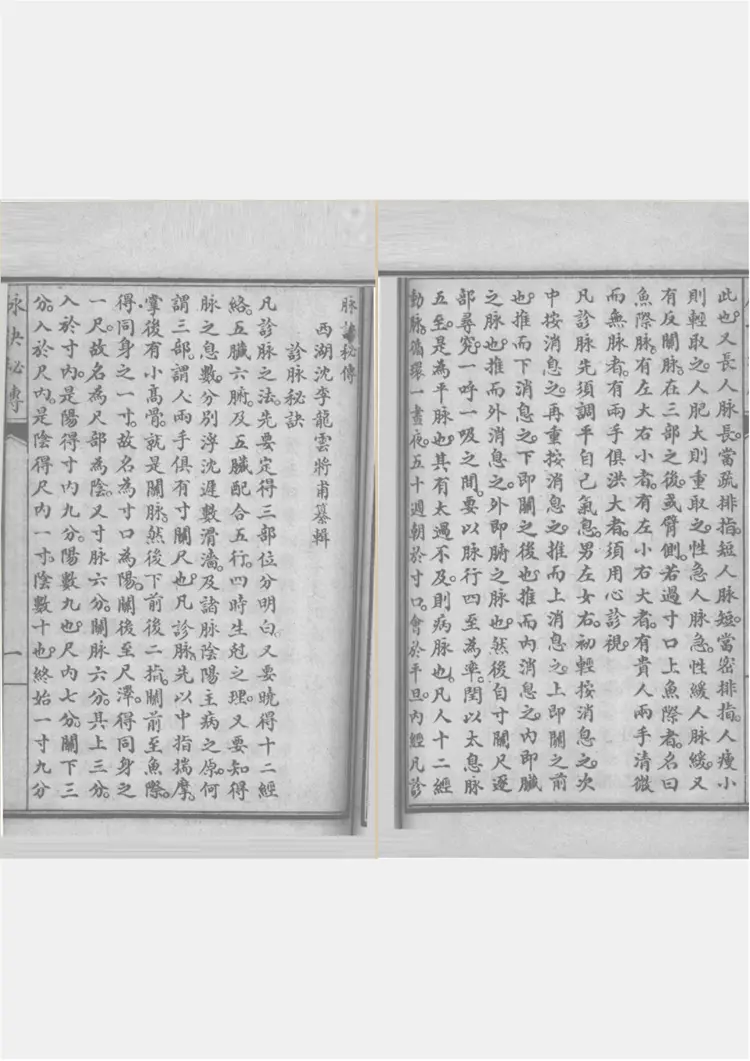 脉訣秘傳
西湖沈李龍雲將甫纂輯
診脉秘訣
凡診脉之法。先要定得三部位分明白。又要曉得十二經
絡。五臟六腑。及五臟配合五行。四時生尅之理。又要知得
脉之息數。分別浮沈遲數滑濇。及諸脉陰陽主病之原。何
謂三部。謂人兩手俱有寸關尺也。凡診脉。先以中指揣摩。
掌後有小高骨。就是關脉。然後下前後二指。關前至魚際。
得同身之一寸。故名為寸口為陽。關後至尺澤。得同身之
一尺。故名為尺部為陰。又寸脉六分。關脉六分。其上三分。
入於寸內。是陽得寸內九分。陽數九也。尺內七分。關下三
分。入於尺內。是陰得尺內一寸。陰數十也。終始一寸九分
脉訣秘傳
一
此也。又長人脉長。當疏排指。短人脉短。當密排指。人瘦小
則輕取之。人肥大則重取之。性急人脉急。性緩人脉緩。又
有反關脉。在三部之後。或臂側。若過寸口上魚際者。名曰
魚際脉。有左大右小者。有左小右大者。有貴人兩手清微
而無脉者。有兩手俱洪大者。須用心診視。
凡診脉先須調平自己氣息。男左女右。初輕按消息之。次
中按消息之。再重按消息之。推而上消息之。上即關之前
也。推而下消息之。下即關之後也。推而內消息之。內即臟
之脉也。推而外消息之。外即腑之脉也。然後自寸關尺逐
部尋究。一呼一吸之間。要以脉行四至為率。閏以太息脉
五至。是為平脉也。其有太過不及。則病脉也。凡人十二經
動脉。循環一晝夜。五十週朝於寸口。會於平旦。內經凡診